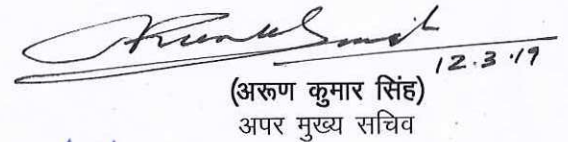 12.3.19
(अरूण कुमार सिंह)
अपर मुख्य सचिव